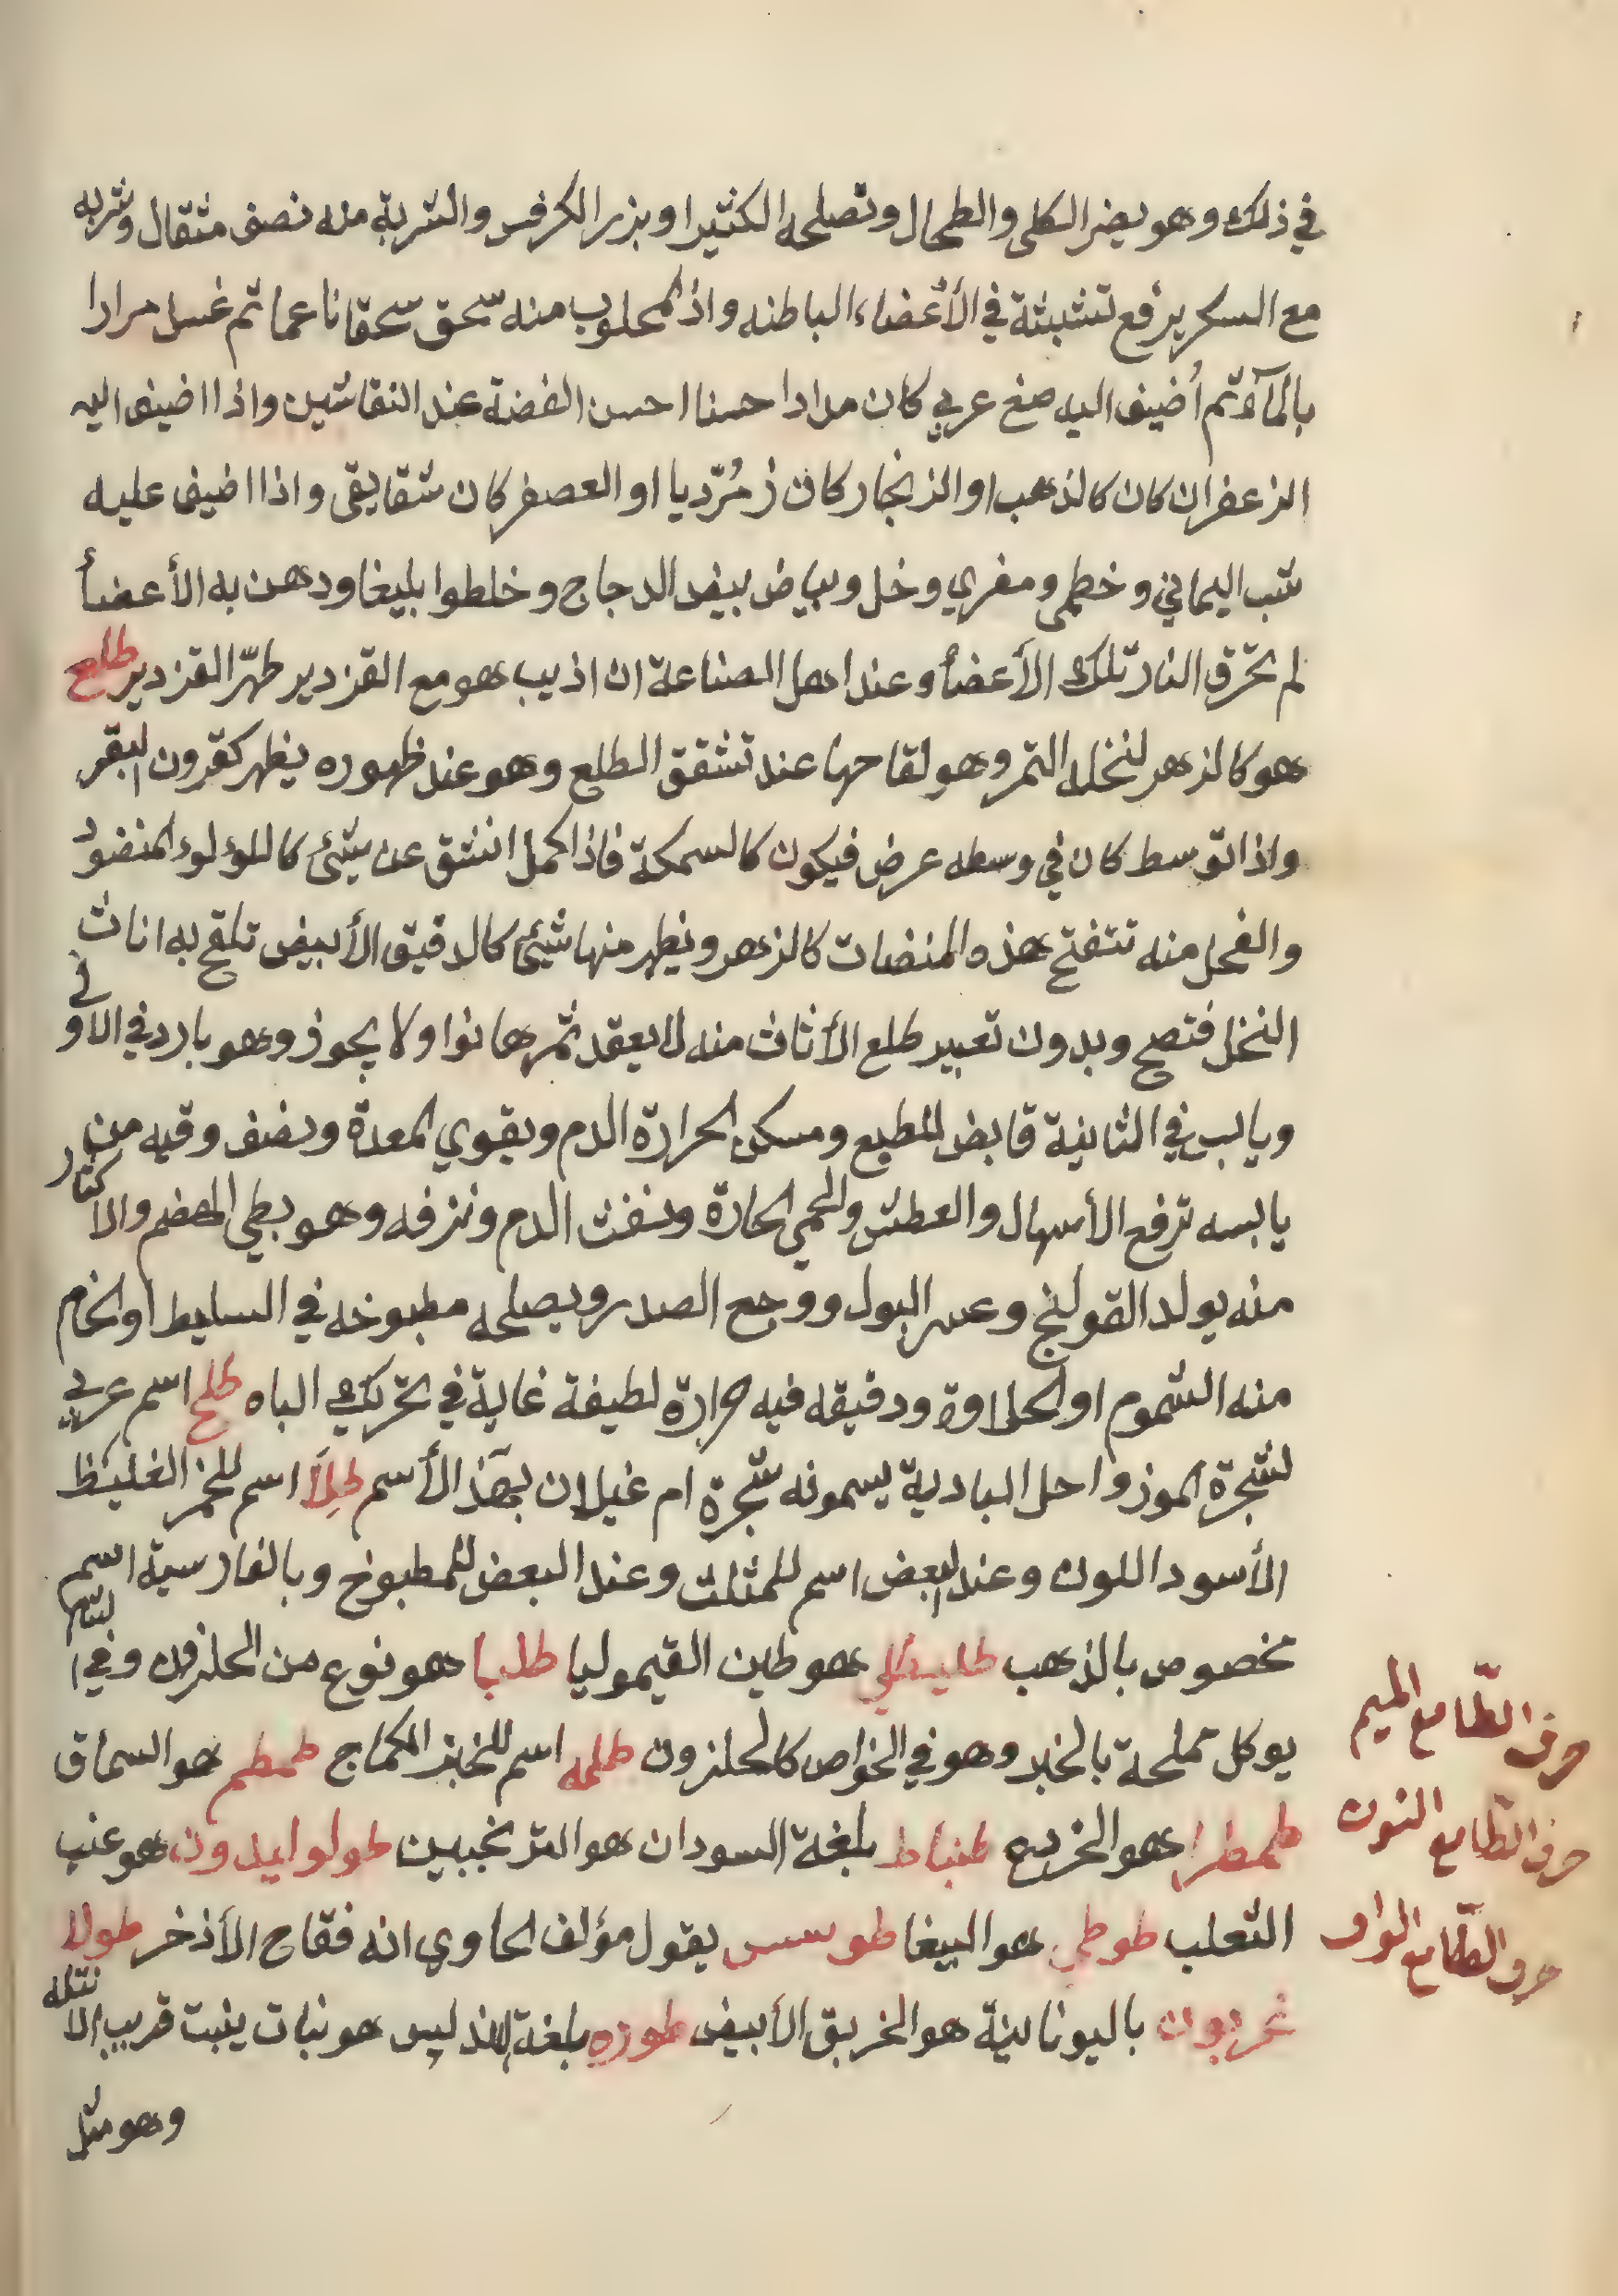 في ذلك وهو يضر الكلى والطحال وتصلحه الكثيرا وبزر الكرفس والشربة منه نصف مثقال وشربه
مع السكر يرفع تشبثة في الأعضاء الباطنه واذ المحلوب منه سحق سحقا ناعما ثم غسل مرارا
بالمآء ثم أضيف اليه صمغ عربي كان مدادا حسنا احسن الفضة عند النقاشين واذا اضيف اليه
الزعفران كان كالذهب او الزنجار كان زمُرّديا او العصفر كان شقايقى واذا اضيف عليه
شب اليماني وخطمى ومغرى وخل وبياض بيض الدجاج وخلطوا بليغا ودهن به الأعضأ
لم تحرق النار تلك الأعضأ وعند اهل الصناعة ان اذيب هو مع القزدير طهّر القزدير طلع
هو كالزهر لنخلة التمر وهو لقاحها عند تشقق الطلع وهو عند ظهوره يظهر كقرون البقر
واذا توسط كان في وسطه عرض فيكون كالسمكة فاذا كمل انشق عن شيئ كاللؤلوء المنضود
والفحل منه تتفتح هذه المنضات كالزهر ويظهر منها شيئ كالدقيق الأبيض تلقح به اناث
النخل فتصح وبدون تعبير طلع الأناث منه لا يعقد ثمرها نوا ولا يجوز وهو بارد في الاو
في
ويابس في الثانية قابض للطبع ومسكن الحرارة الدم ويقوي المعدة ونصف وقيه من
يابسه ترفع الأسهال والعطش والحمي الحارة ونفث الدم ونزفه وهو بطي الهضم والاكثار
منه يولد القولنج وعسر البول ووجع الصدر ويصلحه مطبوخه في السليط او لخام
منه الشموم او الحلاوة ودقيقه فيه حرارة لطيفة غاية في تحريك الباه طلح اسم عربي
لشجرة الموز واحل البادية يسمونه شجرة ام غيلان بهذ الأسم طِلآ اسم للخمر الغليظ
الأسود اللون وعند البعض اسم للمثلث وعند البعض للمطبوخ وبالفارسية اسم
مخصوص بالذهب طليطلي هو طين القيموليا طلبا هو نوع من الحلزون وفي الشام
يوكل مملحة بالخبر وهو في الخواص كالحلزون طلمه اسم للخبز الكماج طمطم هو السماق
طمطرا هو الخروع طنباط بلغة السودان هو الترنجبين طولوليدون هو عنب
الثعلب طوطي هو الببغا طوسس يقول مؤلف الحاوي انه فقاح الأذخر طولا
غريون باليونانية هو الخربق الأبيض طوره بلغة الاندليس هو نبات ينبت قريب الانتله
وهو مثل
حرف الطّا مع الميم
حرف الطّا مع النون
حرف الطّا مع الواو